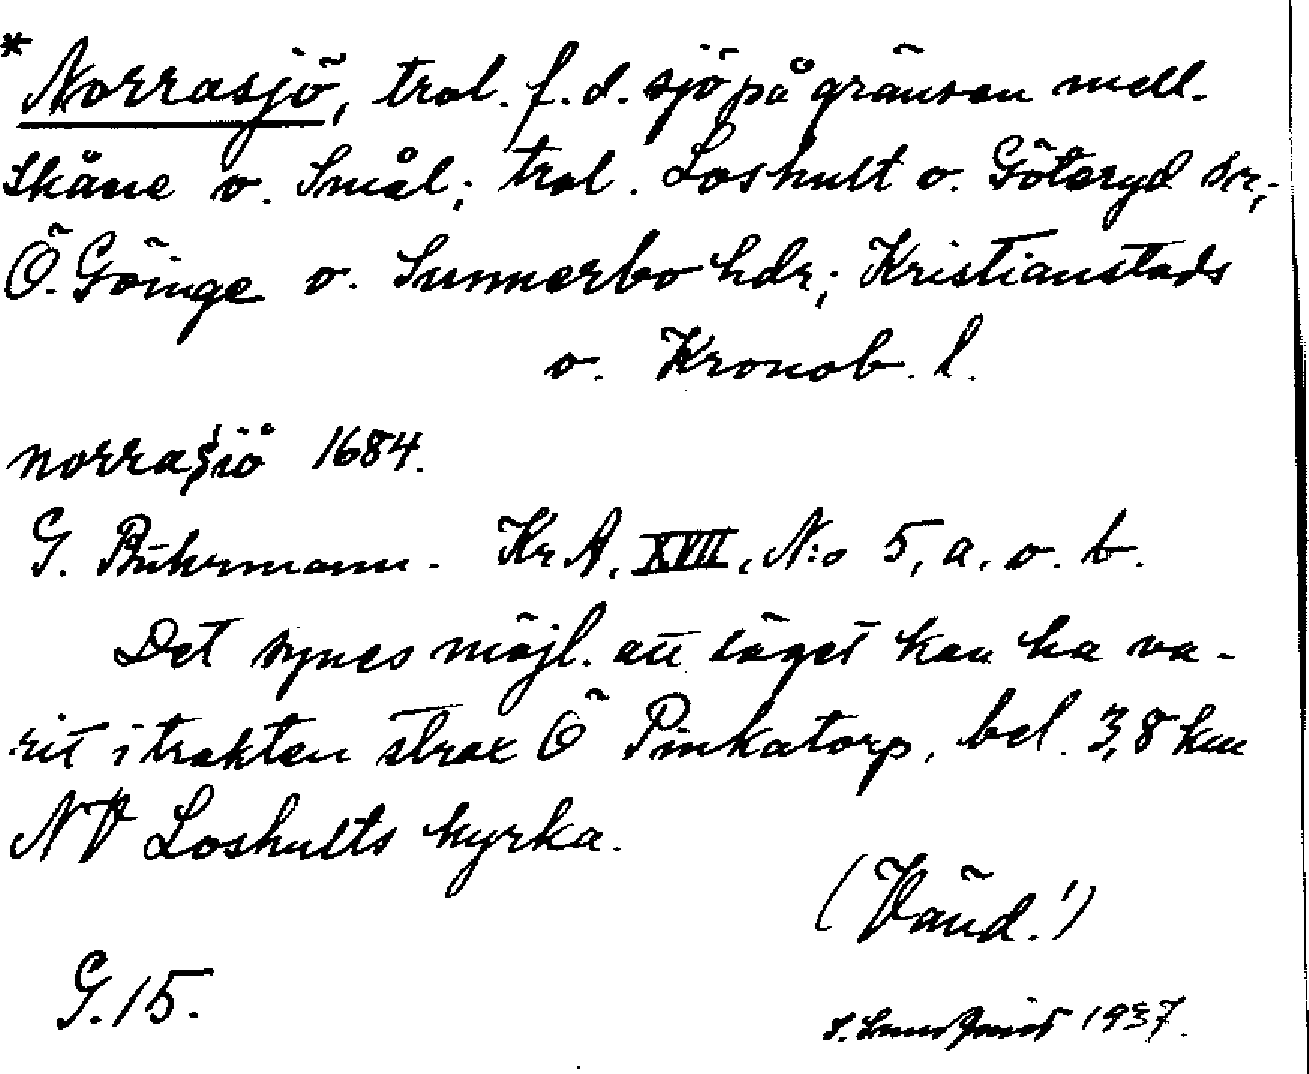 * Norrasjö, trol. f.d. sjö på gränsen mell.
Skåne o. Smål; trol. Loshult o. Göteryd snr;
Ö. Göinge o. Sunnerbo hdr; Kristianstads
o. Kronob. l.
norrasiö 1684.
G. Buhrmann. Kr.A. XVII, N:o 5, a. o. b.
Det synes möjl. att läget kan ha va-
rit i trakten strax Ö Pinkatorp, bel. 3,8 km
NV Loshults kyrka.
(Vänd!)
G.15.
1937.